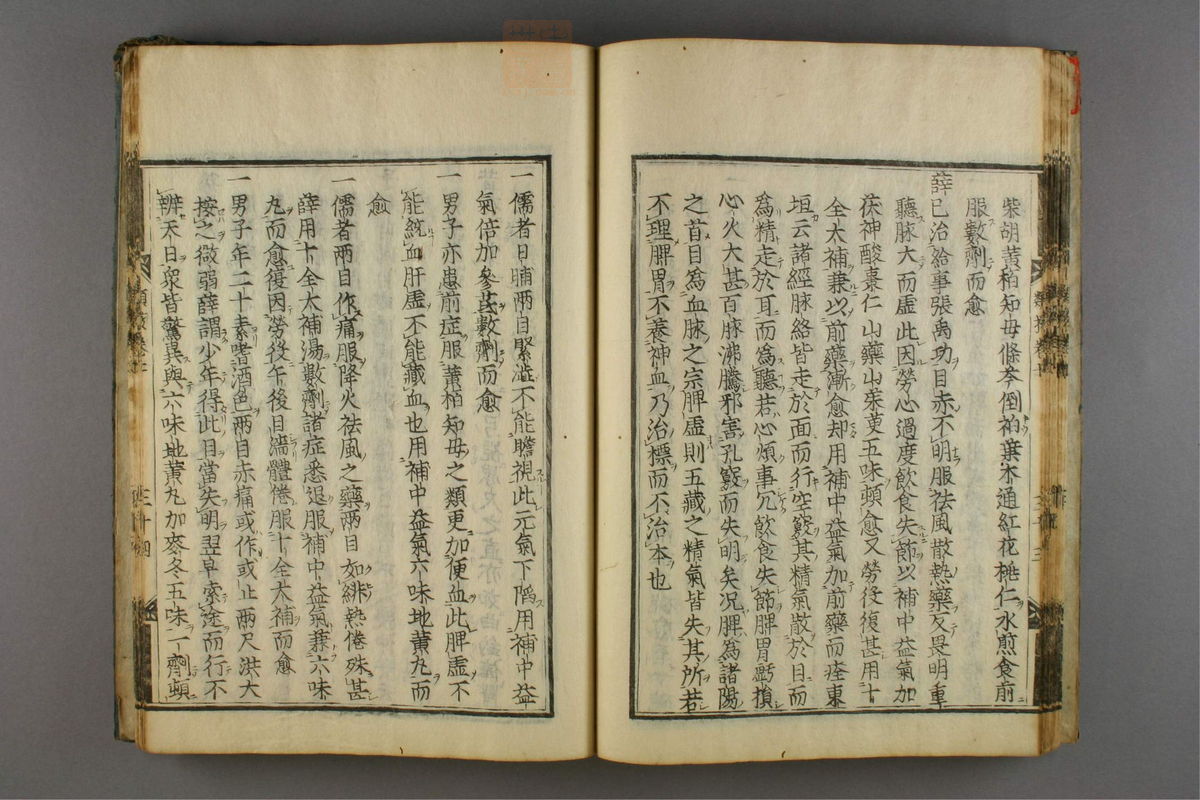 柴胡黄柏知毋條芩倒柏葉木通紅花桃仁水煎食前
服數劑而愈
薛已治給事張禹功目赤不明服祛風散熱藥反畏明重
聽脉大而虛此因勞心過度飲食失節以補中益氣加
茯神酸棗仁山藥山茱萸五味頓愈又勞役復甚用十
全大補兼以前藥漸愈却用補中益氣加前藥而痊東
垣云諸經脉絡皆走於面而行空竅其精氣散於目而
為精走於耳而為聽若心煩事冗飲食失節脾胃虧損
心火大甚百脉沸騰邪害孔竅而失明矣况脾為諸陽
之首目為血脉之宗脾虛則五藏之精氣皆失其所若
不理脾胃不養神血乃治標而不治本也
一儒者日晡兩目緊澁不能瞻視此元氣下陷用補中益
氣倍加參茋數劑而愈
一男子亦患前症服黄栢知毋之類更加便血此脾虛不
能統血肝虛不能藏血也用補中益氣六味地黄丸而
愈
一儒者兩目作痛服降火祛風之藥兩目如緋熱倦殊甚
薛用十全大補湯數劑諸症悉退服補中益氣兼六味
丸而愈復因勞役午後目澁體倦服十全大補而愈
一男子年二十素嗜酒色兩目赤痛或作或止兩尺洪大
按之微弱薛謂少年得此目當失明翌早索途而行不
辨天日衆皆驚異與六味地黄丸加麥冬五味一劑頓
三十四